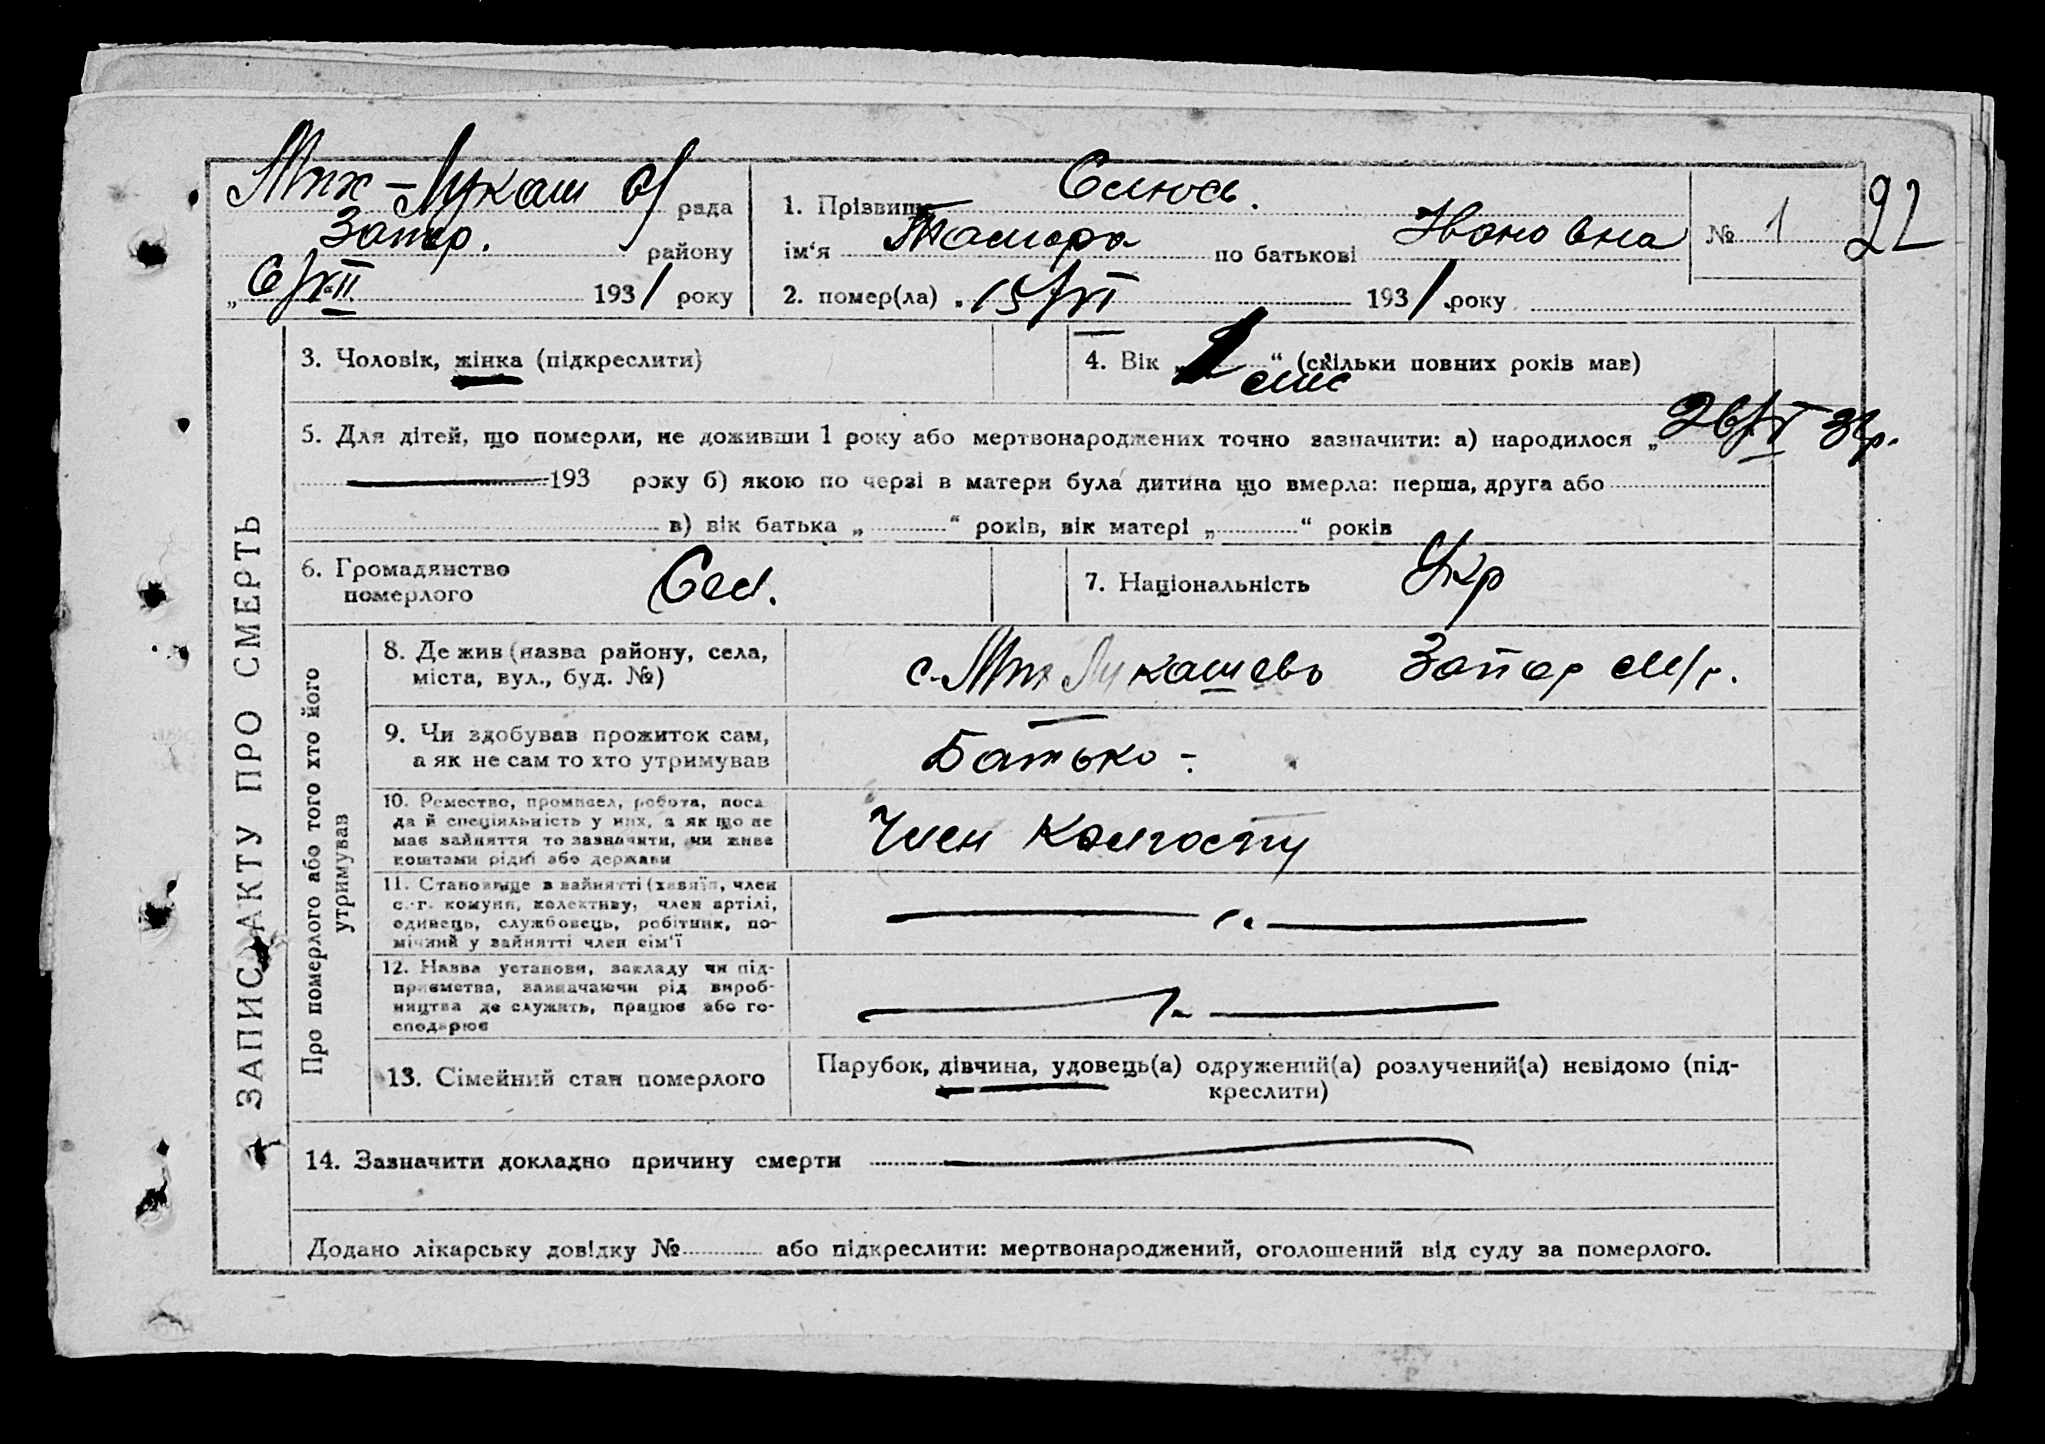 Мих-Лукаш с/ рада
Запор. району
„6/VII 1931 року
1. Прізвище Слюсь.
ім'я Тамара по батькові Ивановна
2. помер(ла) „15/VI 1931 року
№ 1
92
ЗАПИС АКТУ ПРО СМЕРТЬ
3. Чоловік, жінка (підкреслити)
4. Вік „ 1 “ (скільки повних років мав)
міс
5. Для дітей, що померли, не доживши 1 року або мертвонароджених точно зазначити: а) народилося „26/V 31р.
193 року б) якою по черзі в матери була дитина що вмерла: перша, друга або
в) вік батька „ “ років, вік матері „ “ років
6. Громадянство
померлого
7. Національність Укр
Про померлого або того хто його
утримував
8. Де жив (назва району, села,
міста, вул., буд. №)
с. Мих Лукашево Запор
9. Чи здобував прожиток сам,
а як не сам то хто утримував
Батько -
10. Ремество, промисел, робота, поса
да й спеціяльність у них, а як що не
має зайняття то зазначити, чи живе
коштами рідні або держави
Член колгоспу
11. Становище в зайнятті (хазяїн, член
с.-г. комуни, колективу, член артілі,
одинець, службовець, робітник, по-
мічний у зайнятті член сім'ї
12. Назва установи, закладу чи під-
приємства, зазначаючи рід вироб-
ництва де служить, працює або го-
сподарює
13. Сімейний стан померлого
Парубок, дівчина, удовець(а) одружений(а) розлучений(а) невідомо (під-
креслити)
14. Зазначити докладно причину смерти
Додано лікарську довідку № або підкреслити: мертвонароджений, оголошений від суду за померлого.